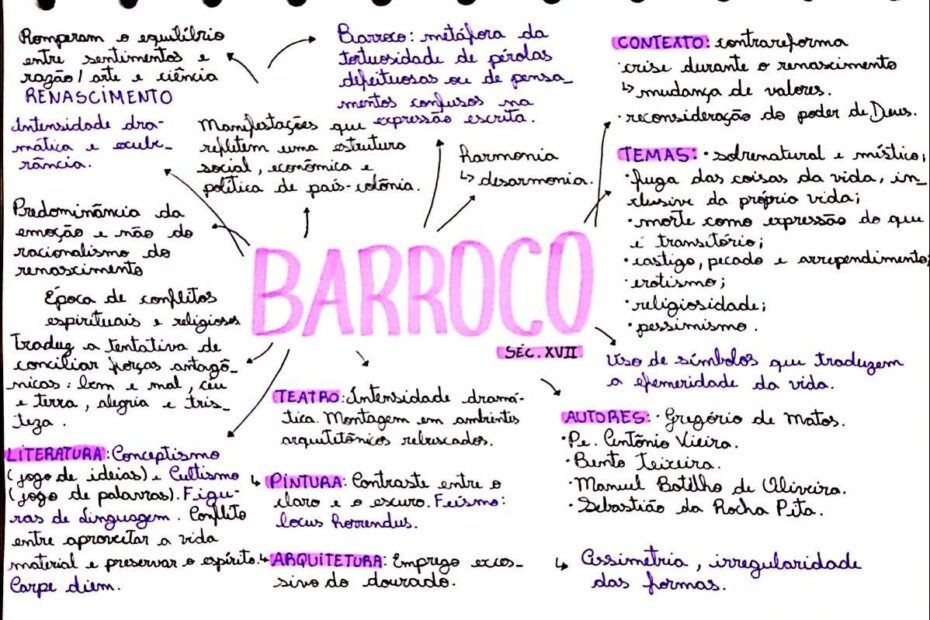 Romperam o equilíbrio
entre sentimentos e
razão/arte e ciência
RENASCIMENTO
Intensidade dra-
mática e exube-
rância.
Predominância da
emoção e não do
racionalismo do
renascimento
Época de conflitos
espirituais e religiosos
Traduz a tentativa de
conciliar forças antagô-
nicas: bem e mal, céu
e terra, alegria e tris-
teza.
LITERATURA: Conceptismo
(jogo de ideias) e Cultismo
(jogo de palavras). Figu-
ras de linguagem. Conflito
entre aproveitar a vida
material e preservar o espírito.
Carpe diem.
Barroco: metáfora da
tortuosidade de pérolas
defeituosas ou de pensa-
mentos confusos na
expressão escrita.
Manifestações que
refletem uma estrutura
social, econômica e
política de país-colônia.
harmonia
↳ desarmonia.
BARROCO
SÉC. XVII
TEATRO: Intensidade dramá-
tica. Montagem em ambientes
arquitetônicos rebuscados.
↳ PINTURA: Contraste entre o
claro e o escuro. Feísmo:
locus horrendus.
↳ ARQUITETURA: Emprego exces-
sivo do dourado.
CONTEXTO: contrareforma
· crise durante o renascimento
↳ mudança de valores.
· reconsideração do poder de Deus.
TEMAS: · sobrenatural e místico;
· fuga das coisas da vida, in-
clusive da própria vida;
· morte como expressão do que
é transitório;
· castigo, pecado e arrependimento;
· erotismo;
· religiosidade;
· pessimismo.
Uso de símbolos que traduzem
a efemeridade da vida.
AUTORES: · Gregório de Matos.
· Pe. Antônio Vieira.
· Bento Teixeira.
· Manuel Botelho de Oliveira.
· Sebastião da Rocha Pita.
↳ Assimetria, irregularidade
das formas.